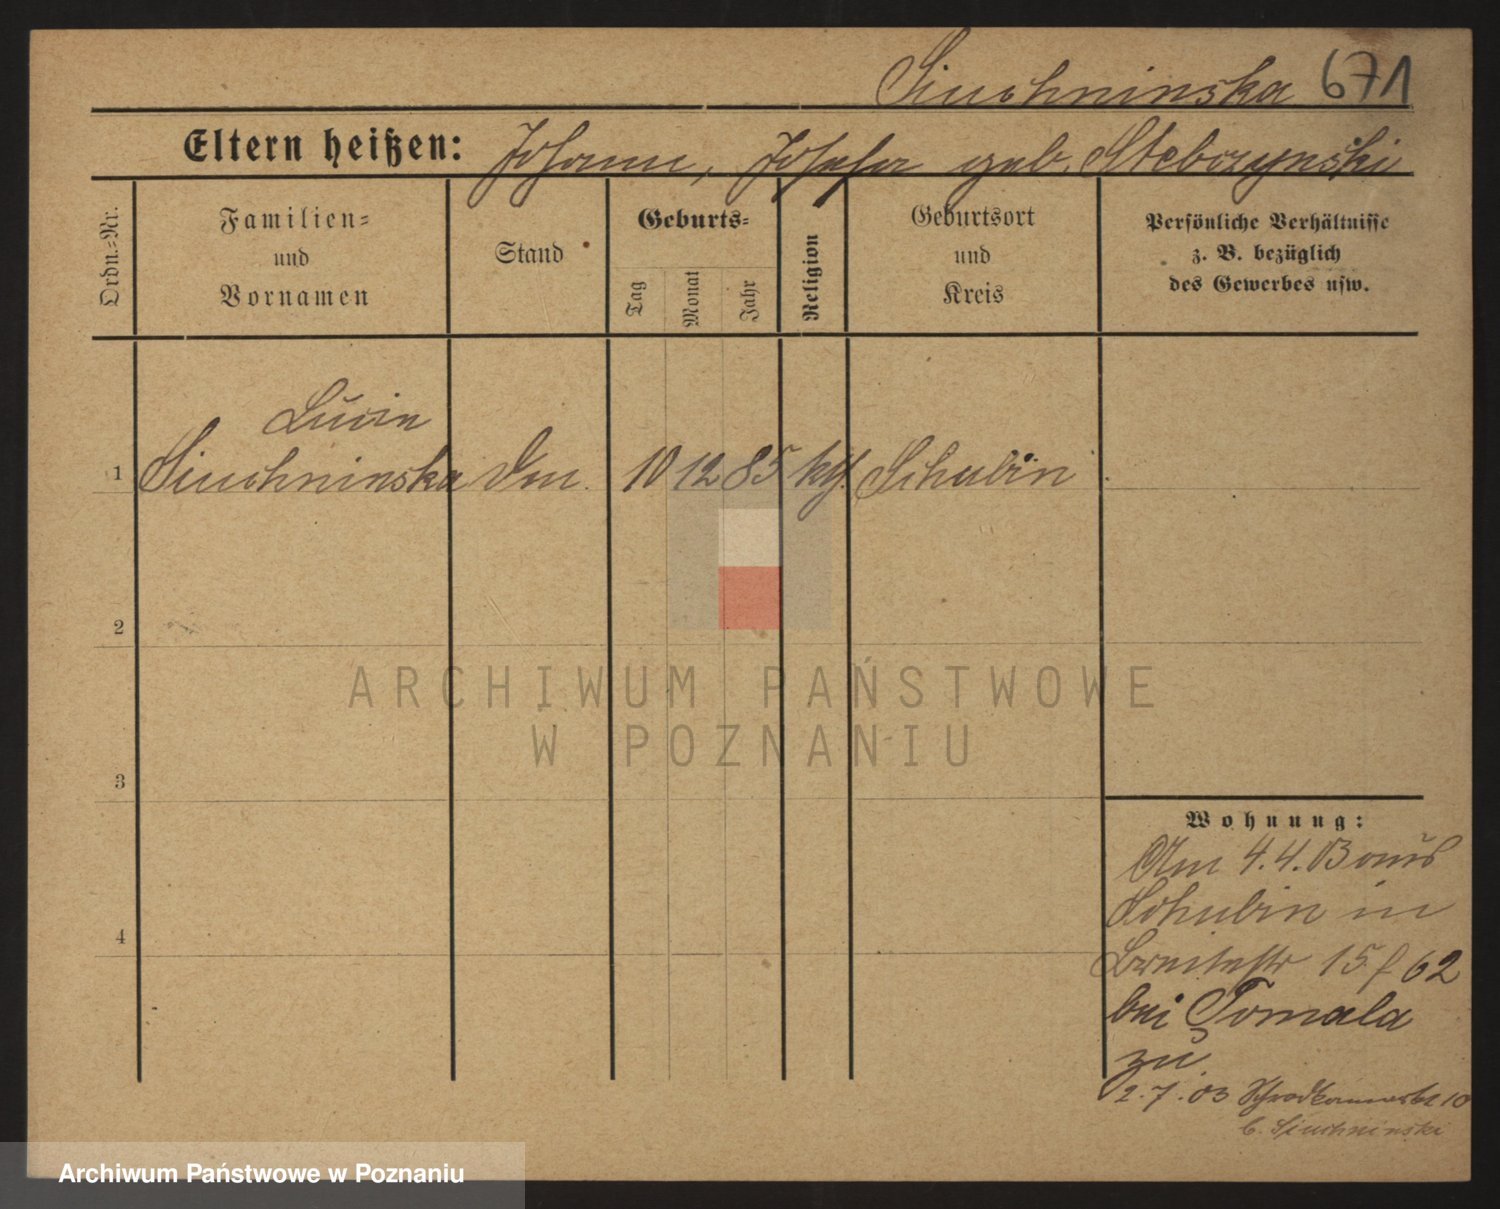 Siuchninska 671
Eltern heißen: Johann, Josefa geb. Stebczynski
Ordn.=Nr.
Familien=
und
Vornamen
Stand
Geburts=
Tag
Monat
Jahr
Religion
Geburtsort
und
Kreis
Persönliche Verhältnisse
z. B. bezüglich
des Gewerbes usw.
Lucie
1 Siuchninska 10 12 85 kth. Schubin
2
ARCHIWUM PAŃSTWOWE
W POZNANIU
3
Wohnung:
Am 4.4.03 aus
Schubin in
4
Breitestr 15 f 62
bei Tomala
zu
2.7.03 10
b. Siuchninski
Archiwum Państwowe w Poznaniu